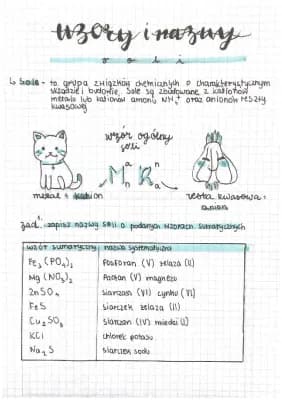 Wzory i nazwy
soli
↳ Sole - to grupa związków chemicznych o charakterystycznym
układzie i budowie. Sole są zbudowane z kationów
metalu lub kationów amonu NH₄⁺ oraz anionów reszty
kwasowej
wzór ogólny
soli
Mₙᵐ Rₘⁿ
metal = kation
reszta kwasowa =
anion
zad 1. zapisz nazwy soli o podanych wzorach sumarycznych
wzór sumaryczny nazwa systematyczna
Fe₃(PO₄)₂ fosforan (V) żelaza (II)
Mg(NO₃)₂ Azotan (V) magnezu
ZnSO₄ siarczan (VI) cynku (VI)
FeS siarczek żelaza (II)
Cu₂SO₃ siarczan (IV) miedzi (I)
KCl chlorek potasu
Na₂S siarczek sodu